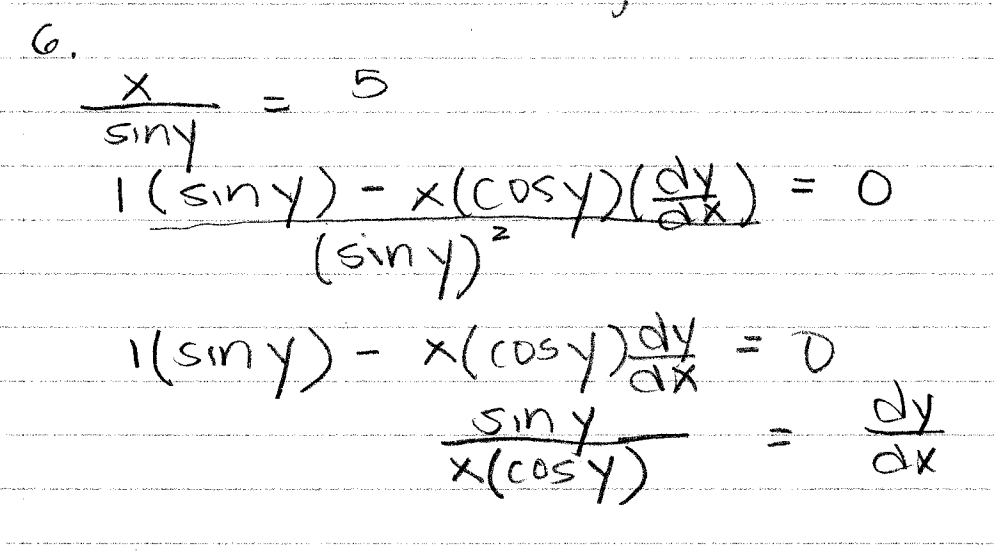 6.
x/sin y = 5
(1(sin y) - x(cos y)(dy/dx))/(sin y)² = 0
1(sin y) - x(cos y) dy/dx = 0
sin y/(x(cos y)) = dy/dx